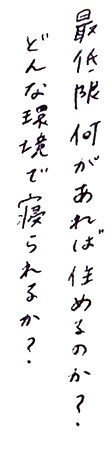 最低限何があれば住めるのか?
どんな環境で寝られるか?